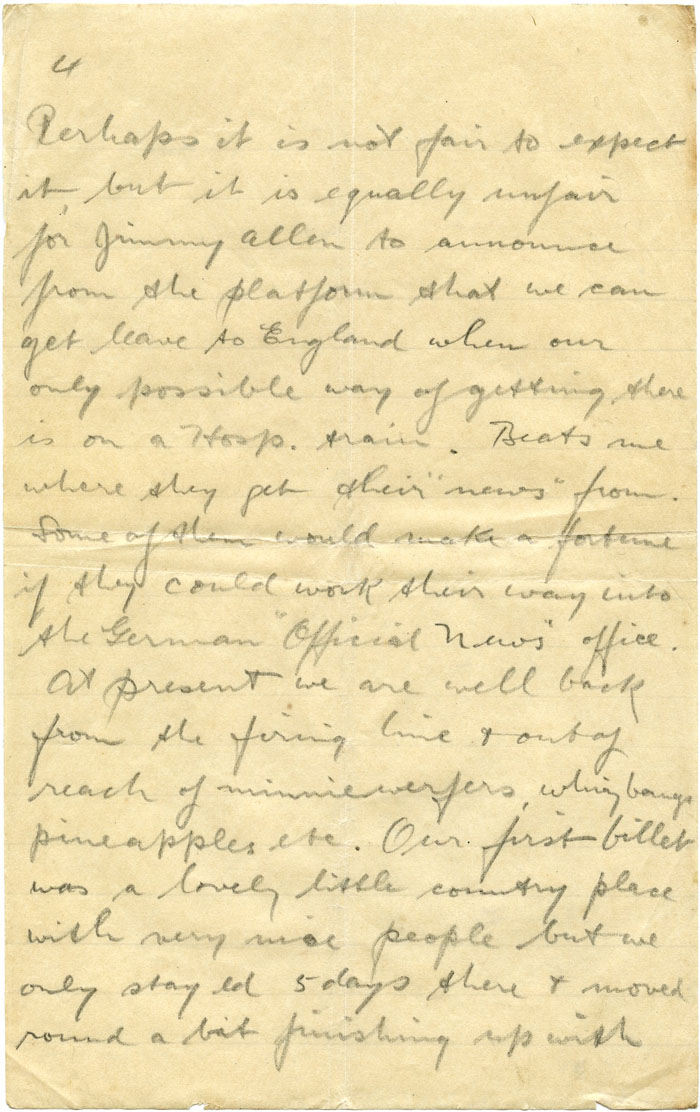 4
Perhaps it is not fair to expect
it, but it is equally unfair
for Jimmy Allen to announce
from the platform that we can
get leave to England when our
only possible way of getting there
is on a Hosp. train. Beats me
where they get their "news" from.
Some of them would make a fortune
if they could work their way into
the German "Official News" office.
At present we are well back
from the firing line & out of
reach of minniewerfers, whizbangs
pineapples etc. Our first billet
was a lovely little country place
with very nice people but we
only stayed 5 days there & moved
round a bit finishing up with